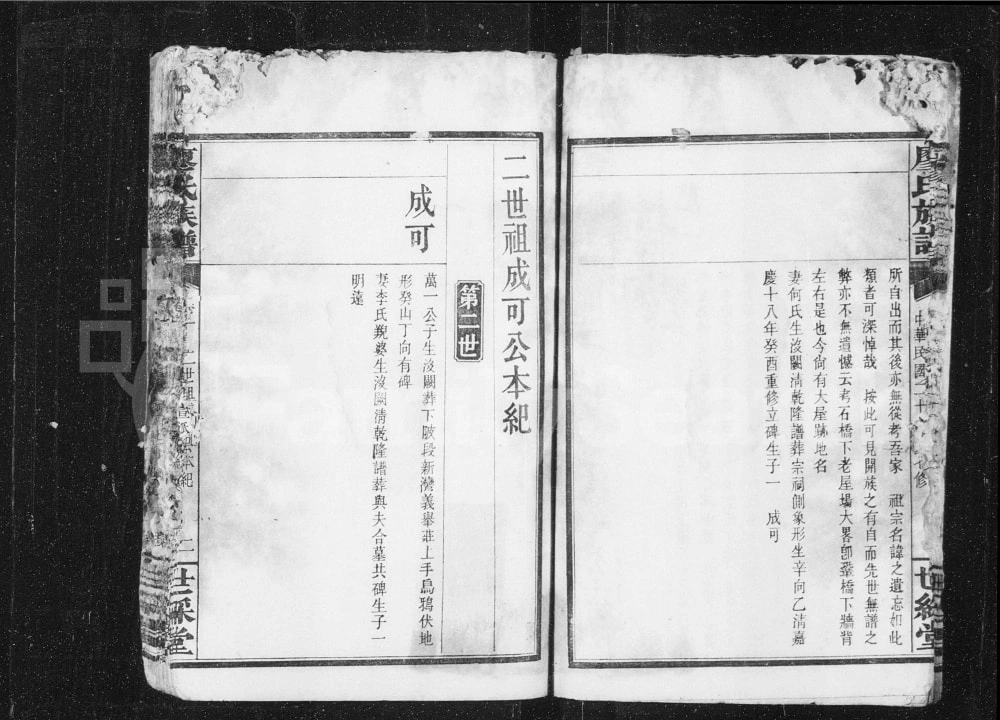 廖氏族譜
所自出而其後亦無從考吾家 祖宗名諱之遺忘如此
類者可深悼哉 按此可見開族之有自而先世無譜之
弊亦不無遺憾云考石橋下老屋場大畧卽鞏橋下牆背
左右是也今尙有大屋跡地名
妻何氏生沒闕淸乾隆譜葬宗祠側象形生辛向乙淸嘉
慶十八年癸酉重修立碑生子一 成可
二世祖成可公本紀
第二世
成可
萬一公子生沒闕葬下陂段新灣義舉莊上手烏鴉伏地
形癸山丁向有碑
妻李氏親婆生沒闕淸乾隆譜葬與夫合墓共碑生子一
明遠
氏族譜
二世祖 公本紀
二
世綵堂